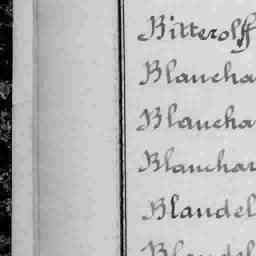 Bitterolff
Blancha
Blancha
Blanchar
Blandel
Blandel